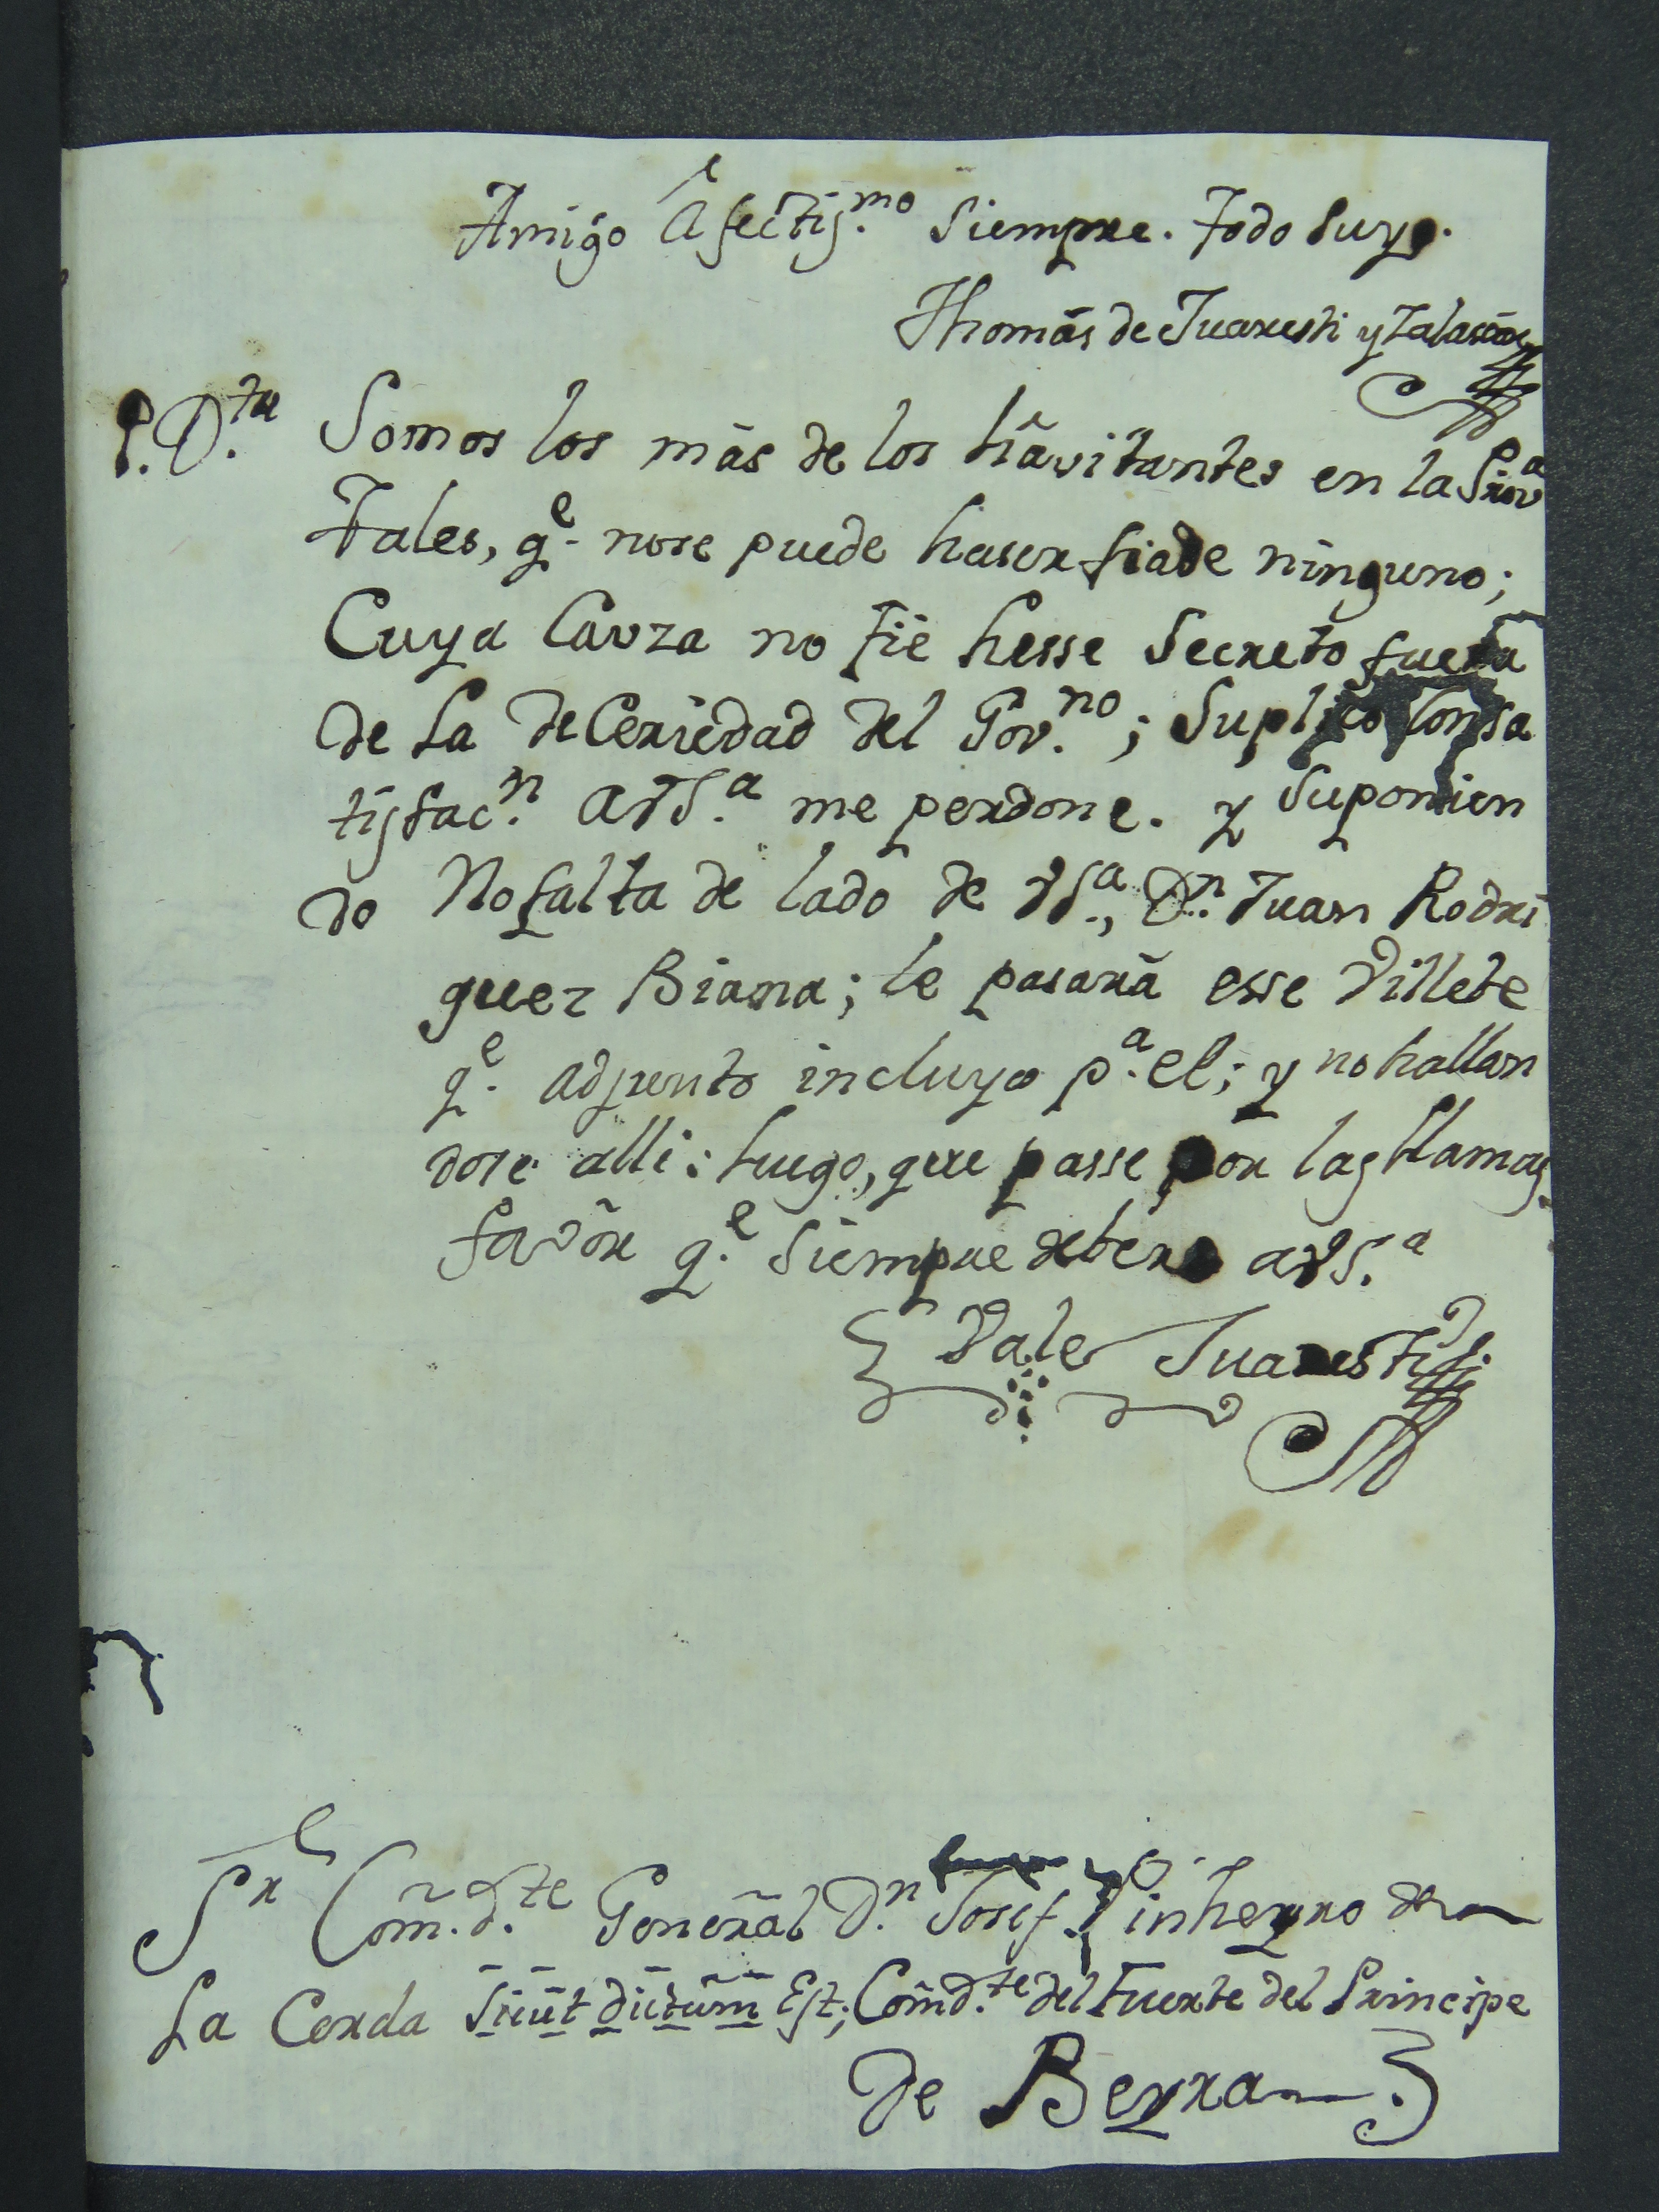 Amigo Afectis.mo Siempre. todo Suyo.
Thomás de Juaresti y
P.D.ta Somos los más de los havitantes en la Prova
tales, q.e nose puede haser fiade ninguno;
Cuya Cauza no fié hesse Secreto fuera
de La deCeriedad del Gov.no; Suplico Consa
tisfac.n aVS.a me perdone. y Suponien
do Nofalta de lado de VS.a, D.n Juan Rodri
guez Biana; le pasará esse Villete
q.e adjunto incluyo p.a el; y no hallan
dose alli: luego, que passe por las llamas
favór q.e Siempre debere aVS.a
Vale Juaresti
Sr Com.d.te General D.n Josef Pinheyro de
La Cerda Sicut dictum Est; Comd.te del Fuerte del Principe
de Beyra